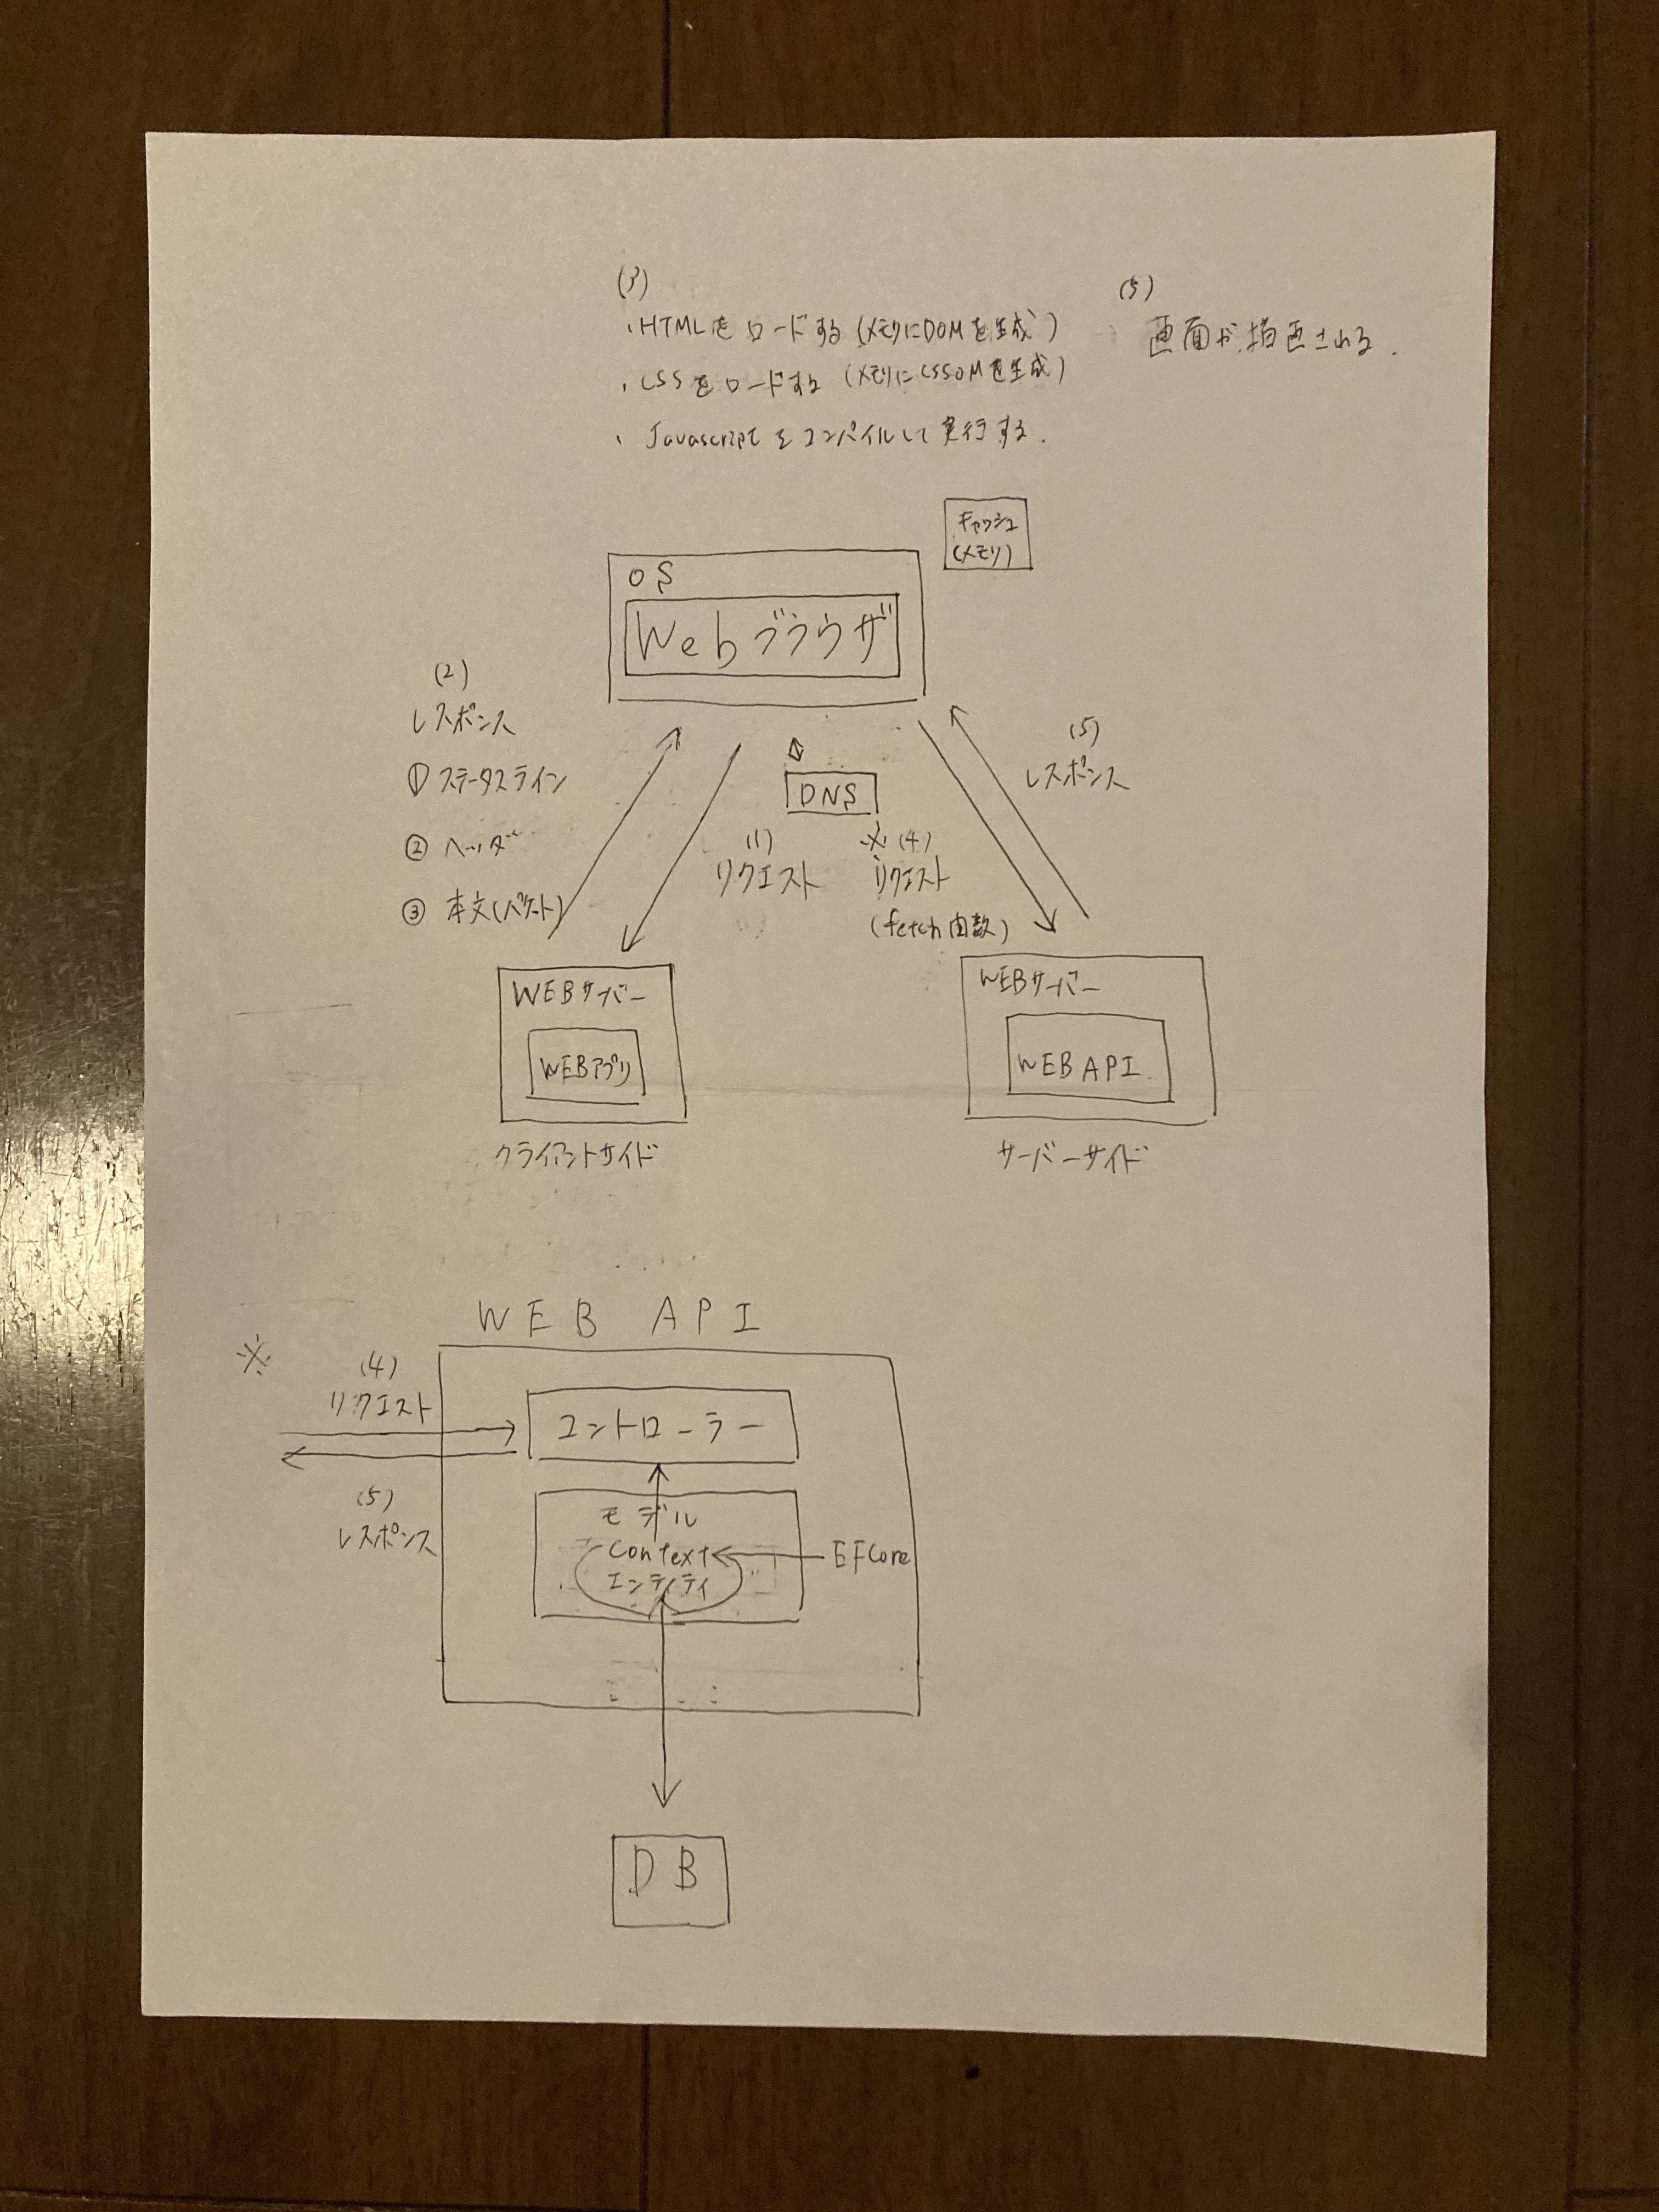 (3)
・HTMLをロードする(メモリにDOMを生成)
・CSSをロードする(メモリにCSSOMを生成)
・Javascriptをコンパイルして実行する.
(5)
画面が描画される.
キャッシュ
(メモリ)
OS
Webブラウザ
(2)
レスポンス
① ステータスライン
② ヘッダ
③ 本文(パケット)
DNS
(1)
リクエスト
※(4)
リクエスト
(fetch関数)
(5)
レスポンス
WEBサーバー
WEBアプリ
クライアントサイド
WEBサーバー
WEB API
サーバーサイド
WEB API
※
(4)
リクエスト
(5)
レスポンス
コントローラー
モデル
Context
エンティティ
EFCore
DB